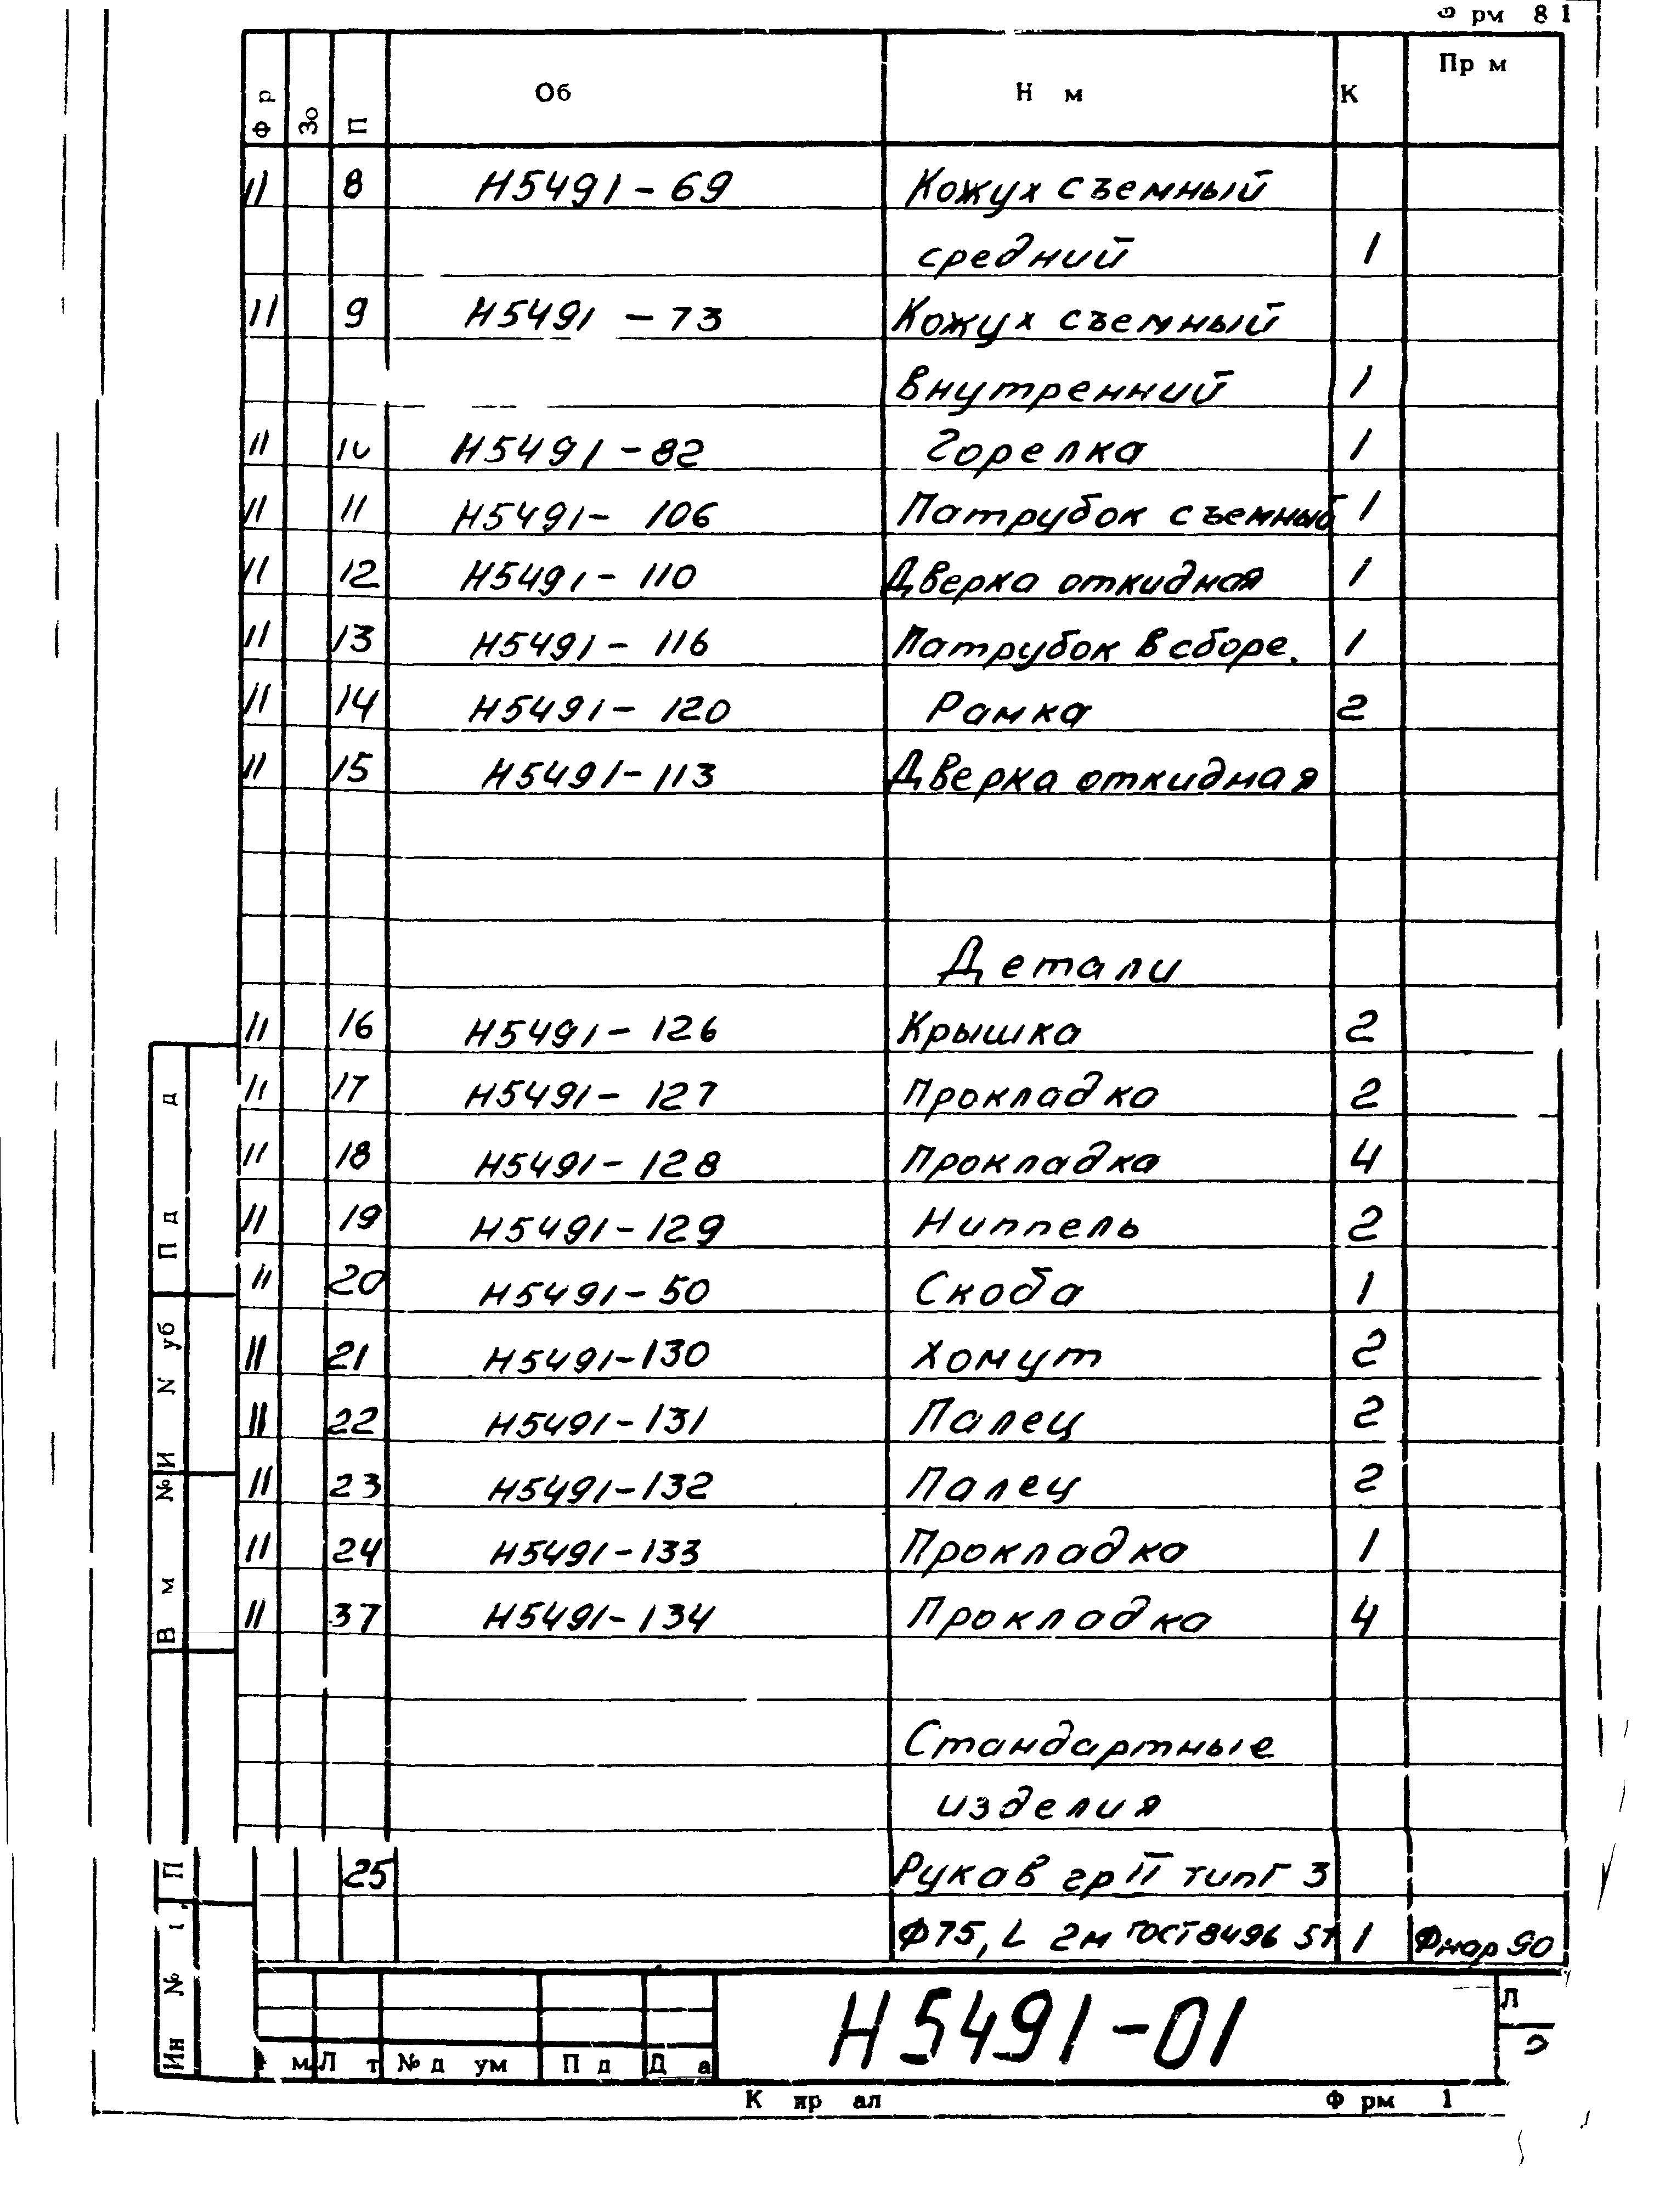 рм 81
Ф р Зо П Об Н м К Пр м
11 8 Н5491-69 Кожух съемный
средний 1
11 9 Н5491-73 Кожух съемный
внутренний 1
11 10 Н5491-82 Горелка 1
11 11 Н5491-106 Патрубок съемный 1
11 12 Н5491-110 Дверка откидная 1
11 13 Н5491-116 Патрубок в сборе. 1
11 14 Н5491-120 Рамка 2
11 15 Н5491-113 Дверка откидная
Детали
11 16 Н5491-126 Крышка 2
11 17 Н5491-127 Прокладка 2
11 18 Н5491-128 Прокладка 4
11 19 Н5491-129 Ниппель 2
11 20 Н5491-50 Скоба 1
11 21 Н5491-130 Хомут 2
11 22 Н5491-131 Палец 2
11 23 Н5491-132 Палец 2
11 24 Н5491-133 Прокладка 1
11 37 Н5491-134 Прокладка 4
Стандартные
изделия
25 Рукав гр II тип Г 3
Ф75, L 2м ГОСТ 8496 57 1 Фнар 90
Н5491-01
Л
м Л т № д ум П д Д а
К ир ал Ф рм 1
П д д
И N уб
В м №
Ин № П